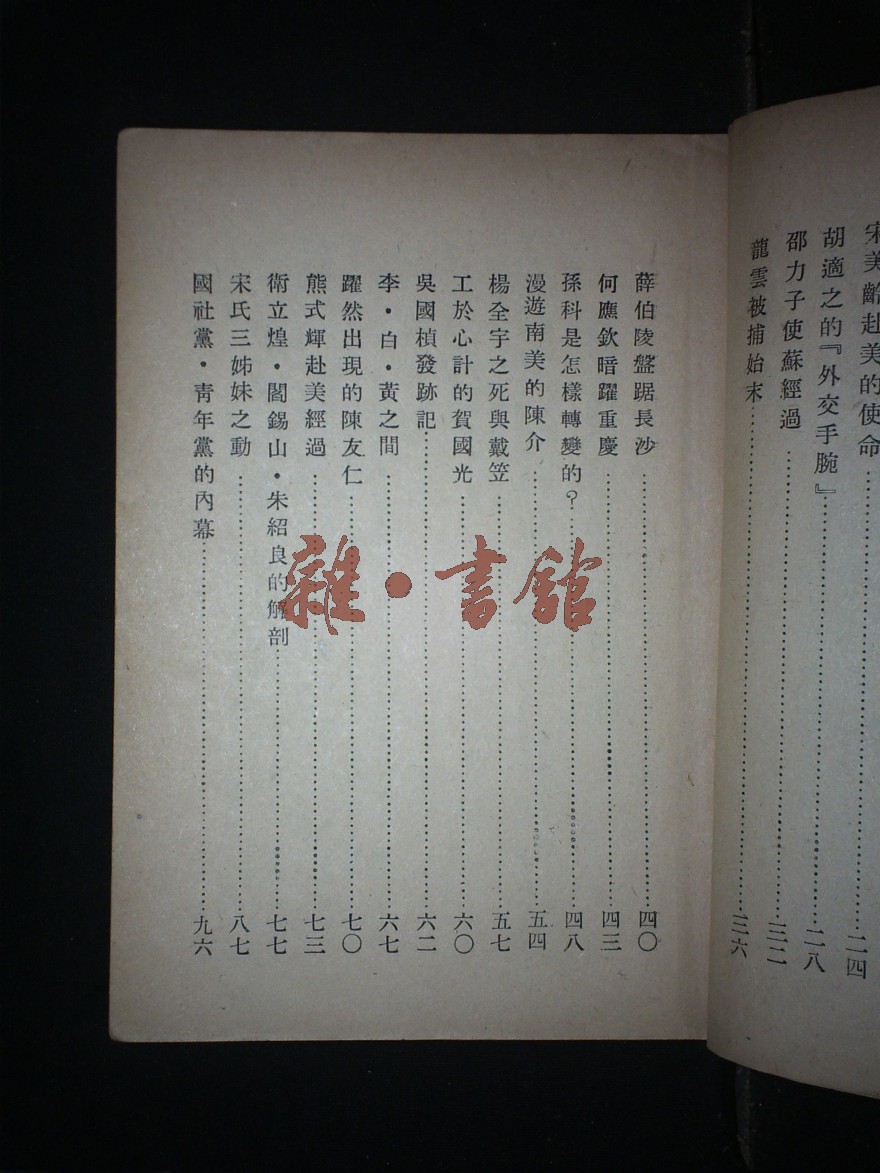 宋美齡赴美的使命……二四
胡適之的『外交手腕』……二八
邵力子使蘇經過……三二
龍雲被捕始末……三六
薛伯陵盤踞長沙……四〇
何應欽暗躍重慶……四三
孫科是怎樣轉變的？……四八
漫遊南美的陳介……五四
楊全宇之死與戴笠……五七
工於心計的賀國光……六〇
吳國楨發跡記……六二
李・白・黃之間……六七
躍然出現的陳友仁……七〇
熊式輝赴美經過……七三
衛立煌・閻錫山・朱紹良的解剖……七七
宋氏三姊妹之動……八七
國社黨・青年黨的內幕……九六
雜・書館